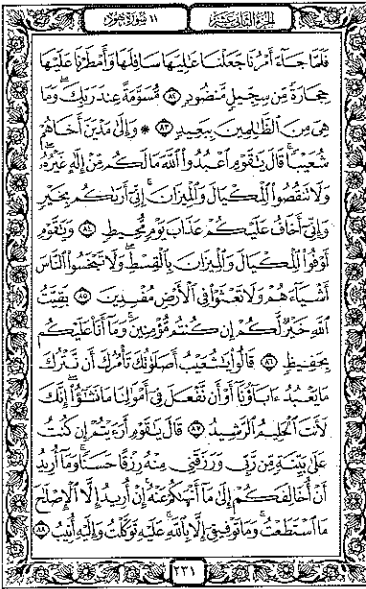 الجزء الثاني عشر
١١ سورة هود
فَلَمَّا جَآءَ أَمْرُنَا جَعَلْنَا عَٰلِيَهَا سَافِلَهَا وَأَمْطَرْنَا عَلَيْهَا
حِجَارَةً مِّن سِجِّيلٍ مَّنضُودٍ ٨٢ مُّسَوَّمَةً عِندَ رَبِّكَ ۖ وَمَا
هِىَ مِنَ ٱلظَّٰلِمِينَ بِبَعِيدٍ ٨٣ ۞ وَإِلَىٰ مَدْيَنَ أَخَاهُمْ
شُعَيْبًا ۚ قَالَ يَٰقَوْمِ ٱعْبُدُوا۟ ٱللَّهَ مَا لَكُم مِّنْ إِلَٰهٍ غَيْرُهُۥ ۖ
وَلَا تَنقُصُوا۟ ٱلْمِكْيَالَ وَٱلْمِيزَانَ ۚ إِنِّىٓ أَرَىٰكُم بِخَيْرٍ
وَإِنِّىٓ أَخَافُ عَلَيْكُمْ عَذَابَ يَوْمٍ مُّحِيطٍ ٨٤ وَيَٰقَوْمِ
أَوْفُوا۟ ٱلْمِكْيَالَ وَٱلْمِيزَانَ بِٱلْقِسْطِ ۖ وَلَا تَبْخَسُوا۟ ٱلنَّاسَ
أَشْيَآءَهُمْ وَلَا تَعْثَوْا۟ فِى ٱلْأَرْضِ مُفْسِدِينَ ٨٥ بَقِيَّتُ
ٱللَّهِ خَيْرٌ لَّكُمْ إِن كُنتُم مُّؤْمِنِينَ ۚ وَمَآ أَنَا۠ عَلَيْكُم
بِحَفِيظٍ ٨٦ قَالُوا۟ يَٰشُعَيْبُ أَصَلَوٰتُكَ تَأْمُرُكَ أَن نَّتْرُكَ
مَا يَعْبُدُ ءَابَآؤُنَآ أَوْ أَن نَّفْعَلَ فِىٓ أَمْوَٰلِنَا مَا نَشَٰٓؤُا۟ ۖ إِنَّكَ
لَأَنتَ ٱلْحَلِيمُ ٱلرَّشِيدُ ٨٧ قَالَ يَٰقَوْمِ أَرَءَيْتُمْ إِن كُنتُ
عَلَىٰ بَيِّنَةٍ مِّن رَّبِّى وَرَزَقَنِى مِنْهُ رِزْقًا حَسَنًا ۚ وَمَآ أُرِيدُ
أَنْ أُخَالِفَكُمْ إِلَىٰ مَآ أَنْهَىٰكُمْ عَنْهُ ۚ إِنْ أُرِيدُ إِلَّا ٱلْإِصْلَٰحَ
مَا ٱسْتَطَعْتُ ۚ وَمَا تَوْفِيقِىٓ إِلَّا بِٱللَّهِ ۚ عَلَيْهِ تَوَكَّلْتُ وَإِلَيْهِ أُنِيبُ ٨٨
٢٣١